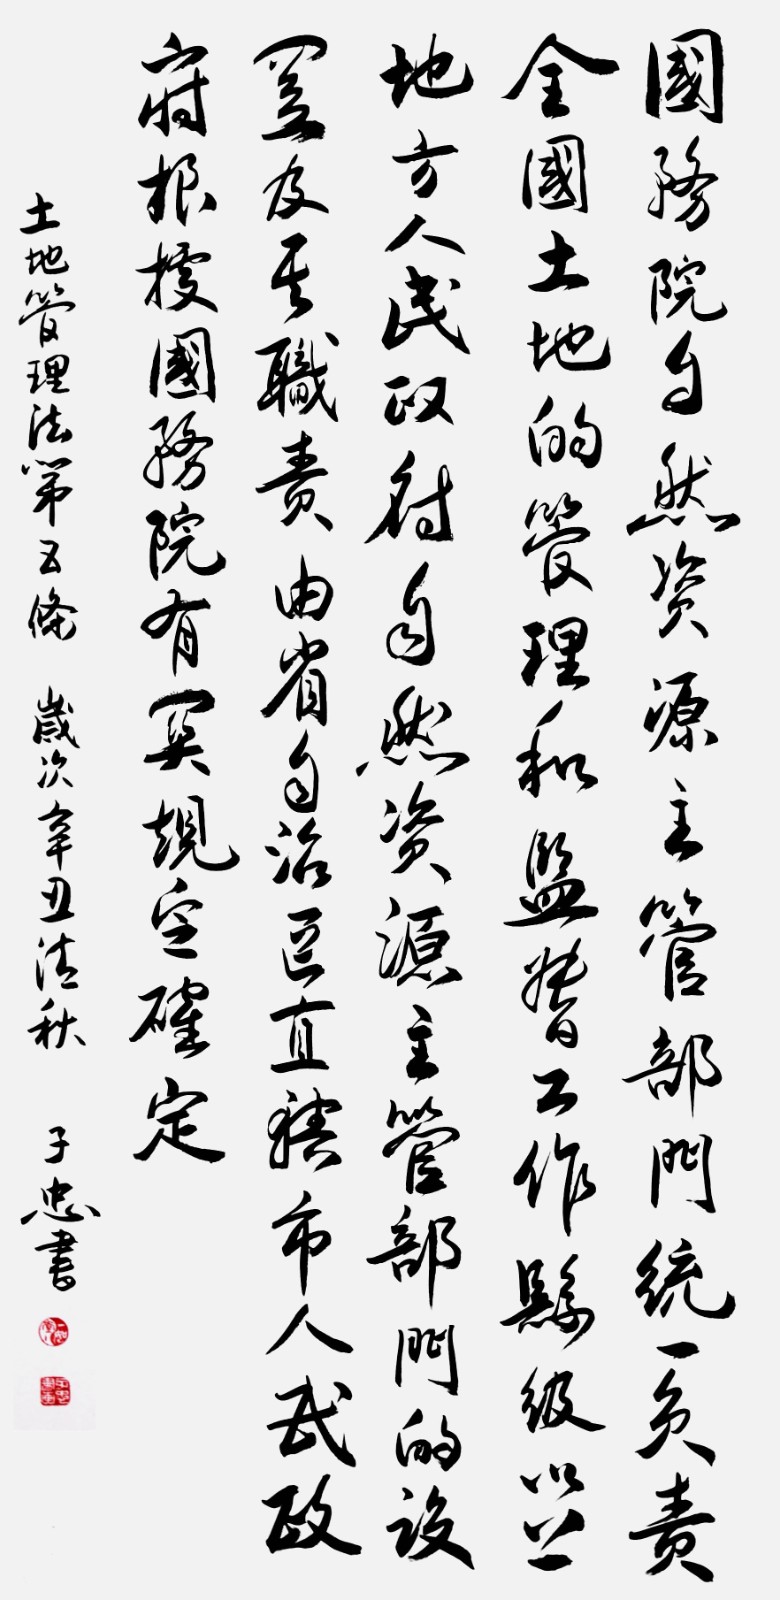 國務院自然资源主管部門統一负責
全國土地的管理和監督工作縣級以上
地方人民政府自然资源主管部門的設
置及其職責由省自治區直轄市人民政
府根據國務院有關規定確定
土地管理法第五條 歲次辛丑清秋 子忠書